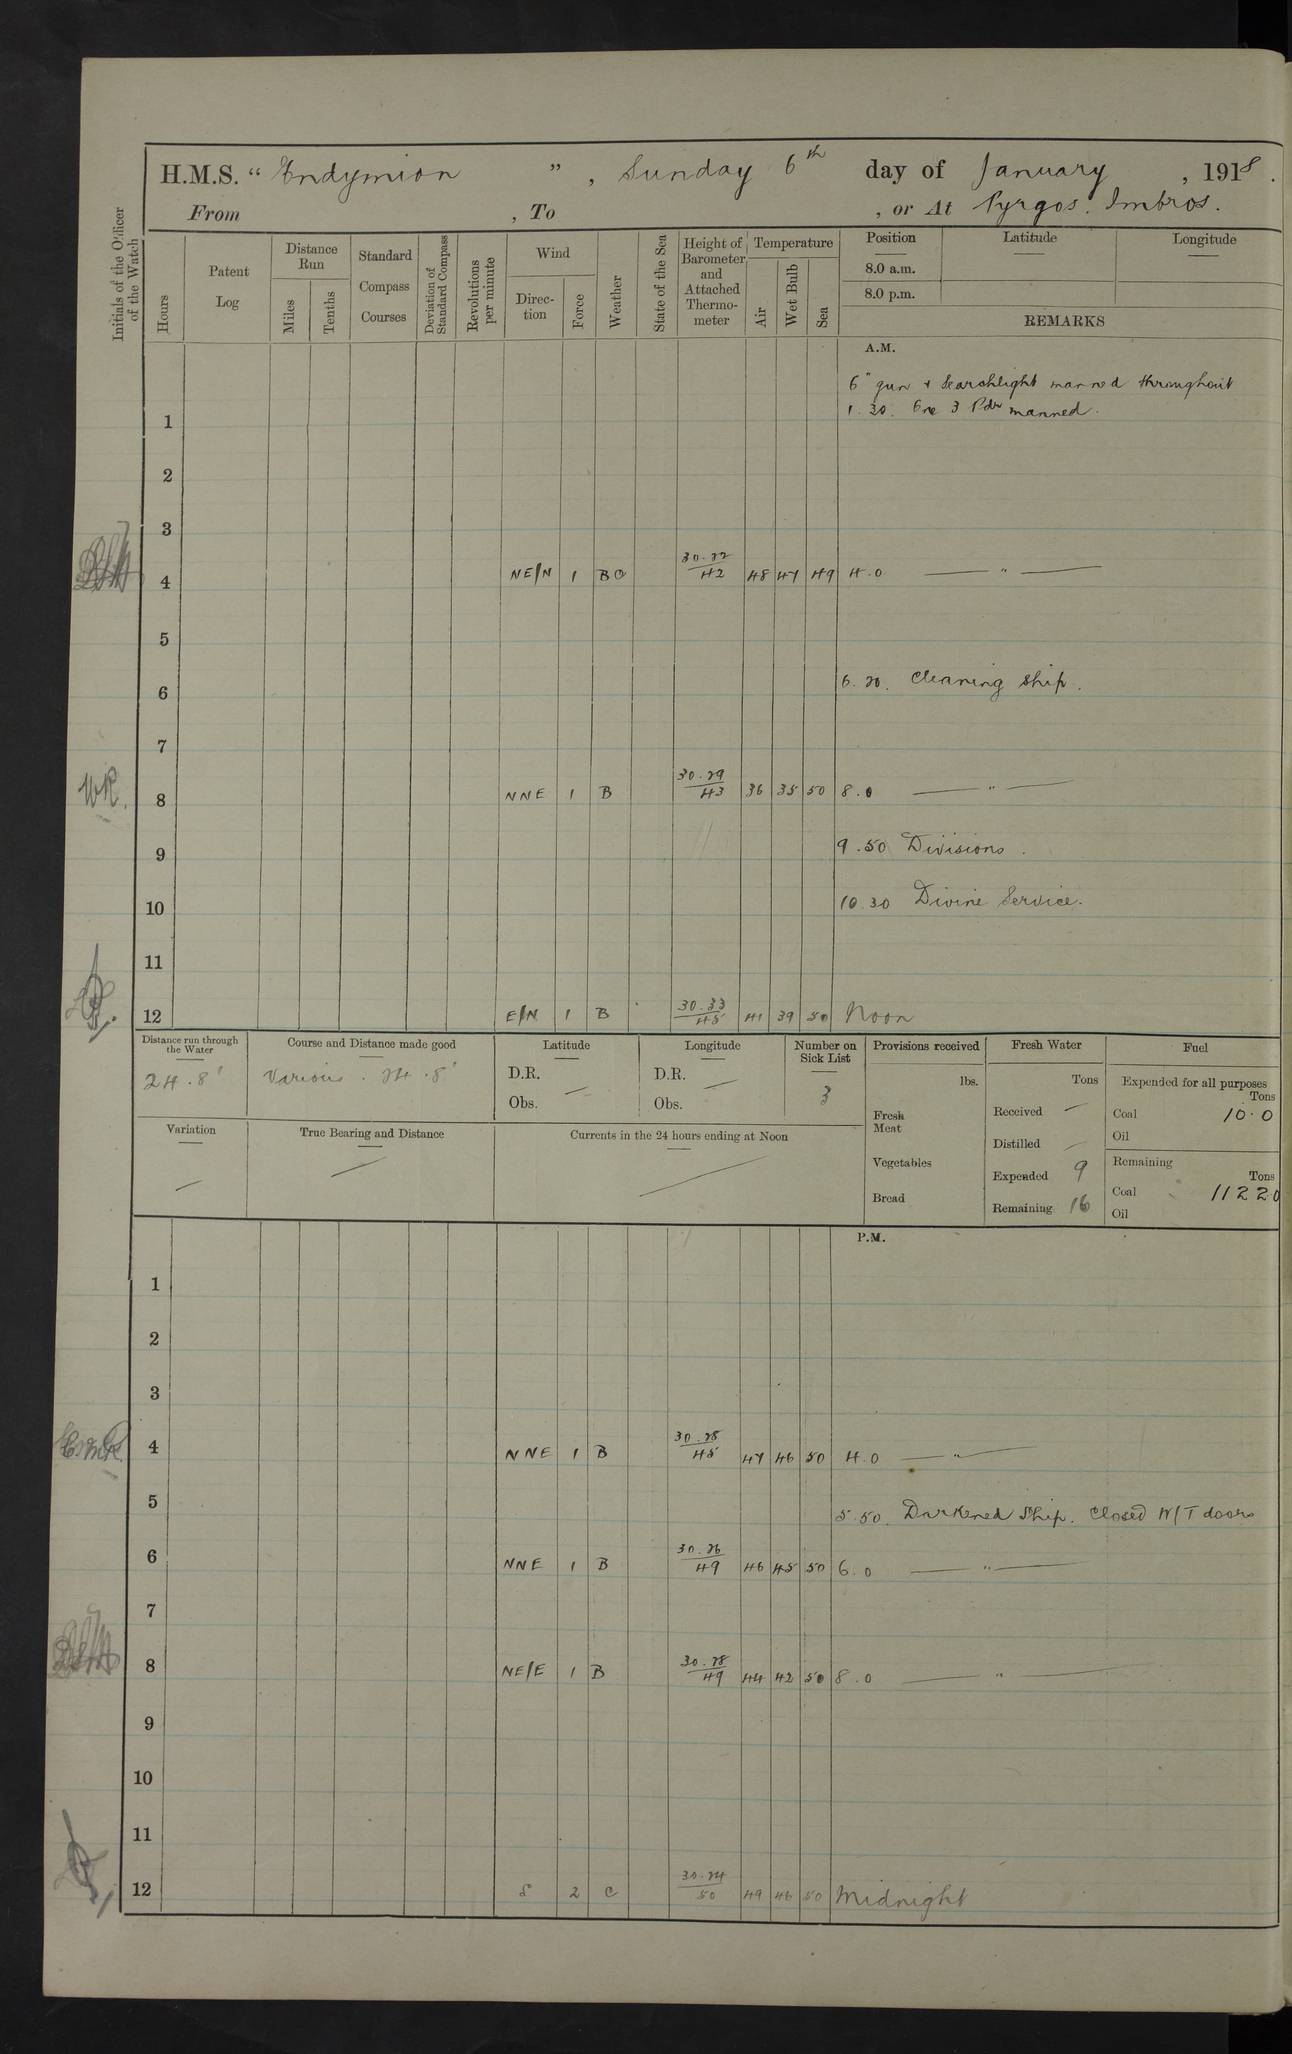 H.M.S. “ Endymion ” , Sunday 6th day of January , 1918 .
From , To , or At Pyrgos. Imbros.
Initials of the Officer of the Watch
Hours
Patent Log
Distance Run
Miles
Tenths
Standard Compass Courses
Deviation of Standard Compass
Revolutions per minute
Wind
Direc-tion
Force
Weather
State of the Sea
Height of Barometer and Attached Thermo-meter
Temperature
Air
Wet Bulb
Sea
Position Latitude Longitude
8.0 a.m.
8.0 p.m.
REMARKS
A.M.
6" gun & Searchlight manned throughout
1 1.30. One 3 Pdr manned.
2
3
4 NE/N 1 BC 30.22/42 48 47 49 4.0 — " —
5
6 6.20. Cleaning Ship.
7
8 WR. NNE 1 B 30.29/43 36 35 50 8.0 — " —
9 9.50 Divisions.
10 10.30 Divine Service.
11
12 E/N 1 B 30.33/45 41 39 50 Noon
Distance run through the Water
24.8'
Course and Distance made good
Various. 24.8'
Latitude
D.R.
Obs. —
Longitude
D.R.
Obs. —
Number on Sick List
3
Provisions received
lbs.
Fresh Meat
Vegetables
Bread
Fresh Water
Tons
Received —
Distilled —
Expended 9
Remaining 16
Fuel
Expended for all purposes
Tons
Coal 10.0
Oil
Remaining
Tons
Coal 1122.0
Oil
Variation
—
True Bearing and Distance
Currents in the 24 hours ending at Noon
P.M.
1
2
3
4 NNE 1 B 30.28/45 47 46 50 4.0 — " —
5 5.50. Darkened Ship. Closed W/T doors
6 NNE 1 B 30.26/49 46 45 50 6.0 — " —
7
8 NE/E 1 B 30.28/49 44 42 50 8.0 — " —
9
10
11
12 S 2 C 30.24/50 49 46 50 Midnight